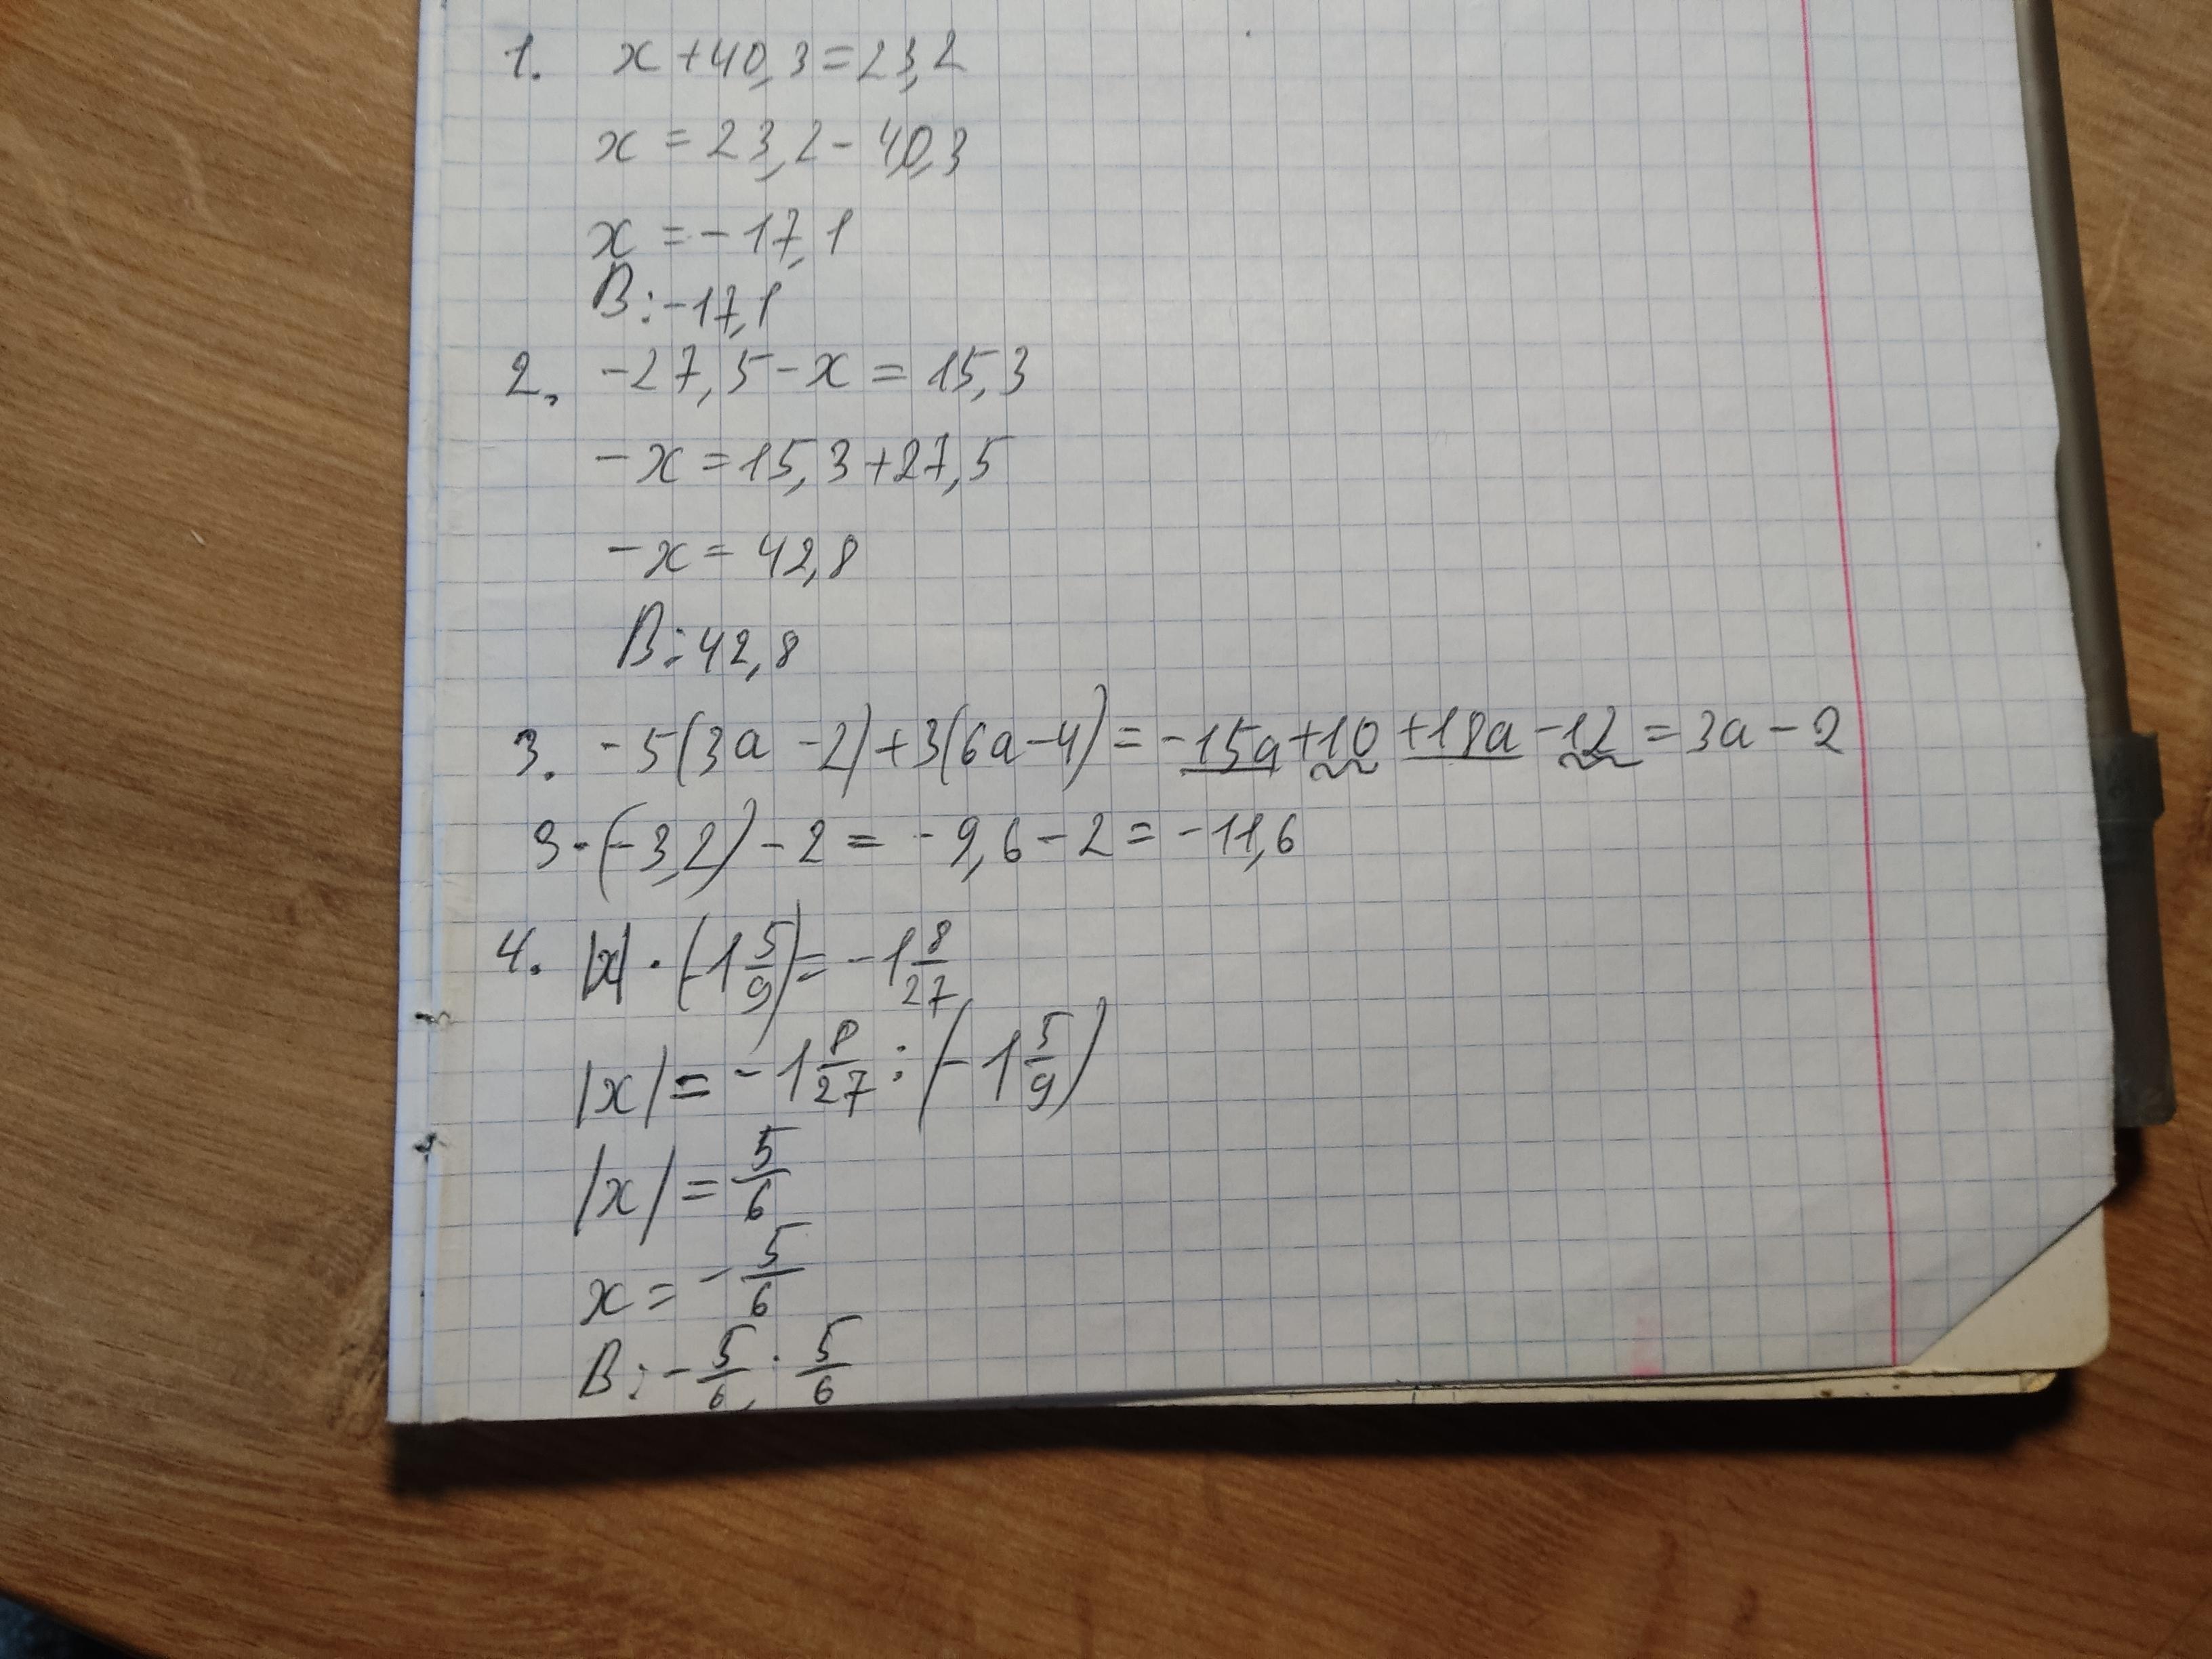 1. x + 40,3 = 23,2
x = 23,2 - 40,3
x = -17,1
В: -17,1
2. -27,5 - x = 15,3
-x = 15,3 + 27,5
-x = 42,8
В: 42,8
3. -5(3a - 2) + 3(6a - 4) = -15a + 10 + 18a - 12 = 3a - 2
3·(-3,2) - 2 = -9,6 - 2 = -11,6
4. |x| · (-1 5/9) = -1 8/27
|x| = -1 8/27 : (-1 5/9)
|x| = 5/6
x = -5/6
В: -5/6; 5/6